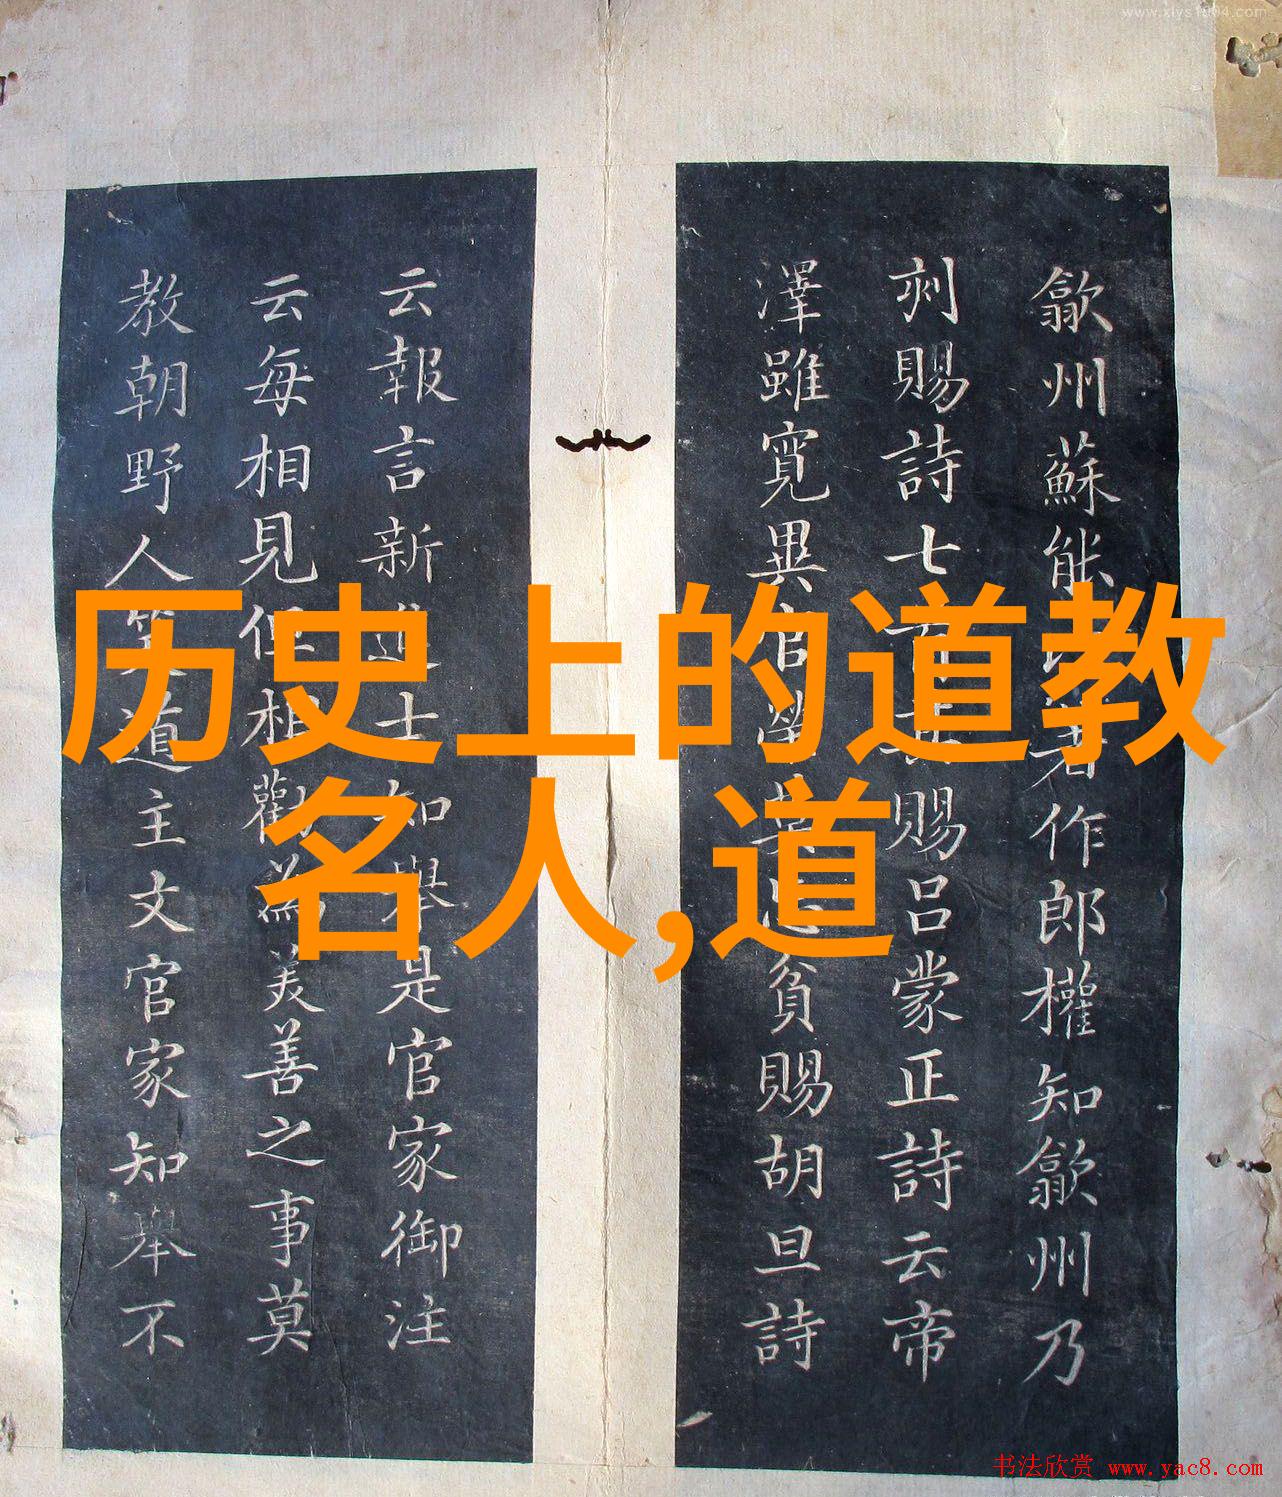 www.xlys1904.com
历史上的道教
名人,道
歙州蘇能著作郎權知歙州乃
刺賜詩七賜呂蒙正詩云帝
澤雖寬異官貧賜胡旦詩
云報言新進士知舉是官家御注
云每相見但相勸為美善之事莫
教朝野人笑道主文官家知舉不
书法欣赏 www.yac8.com